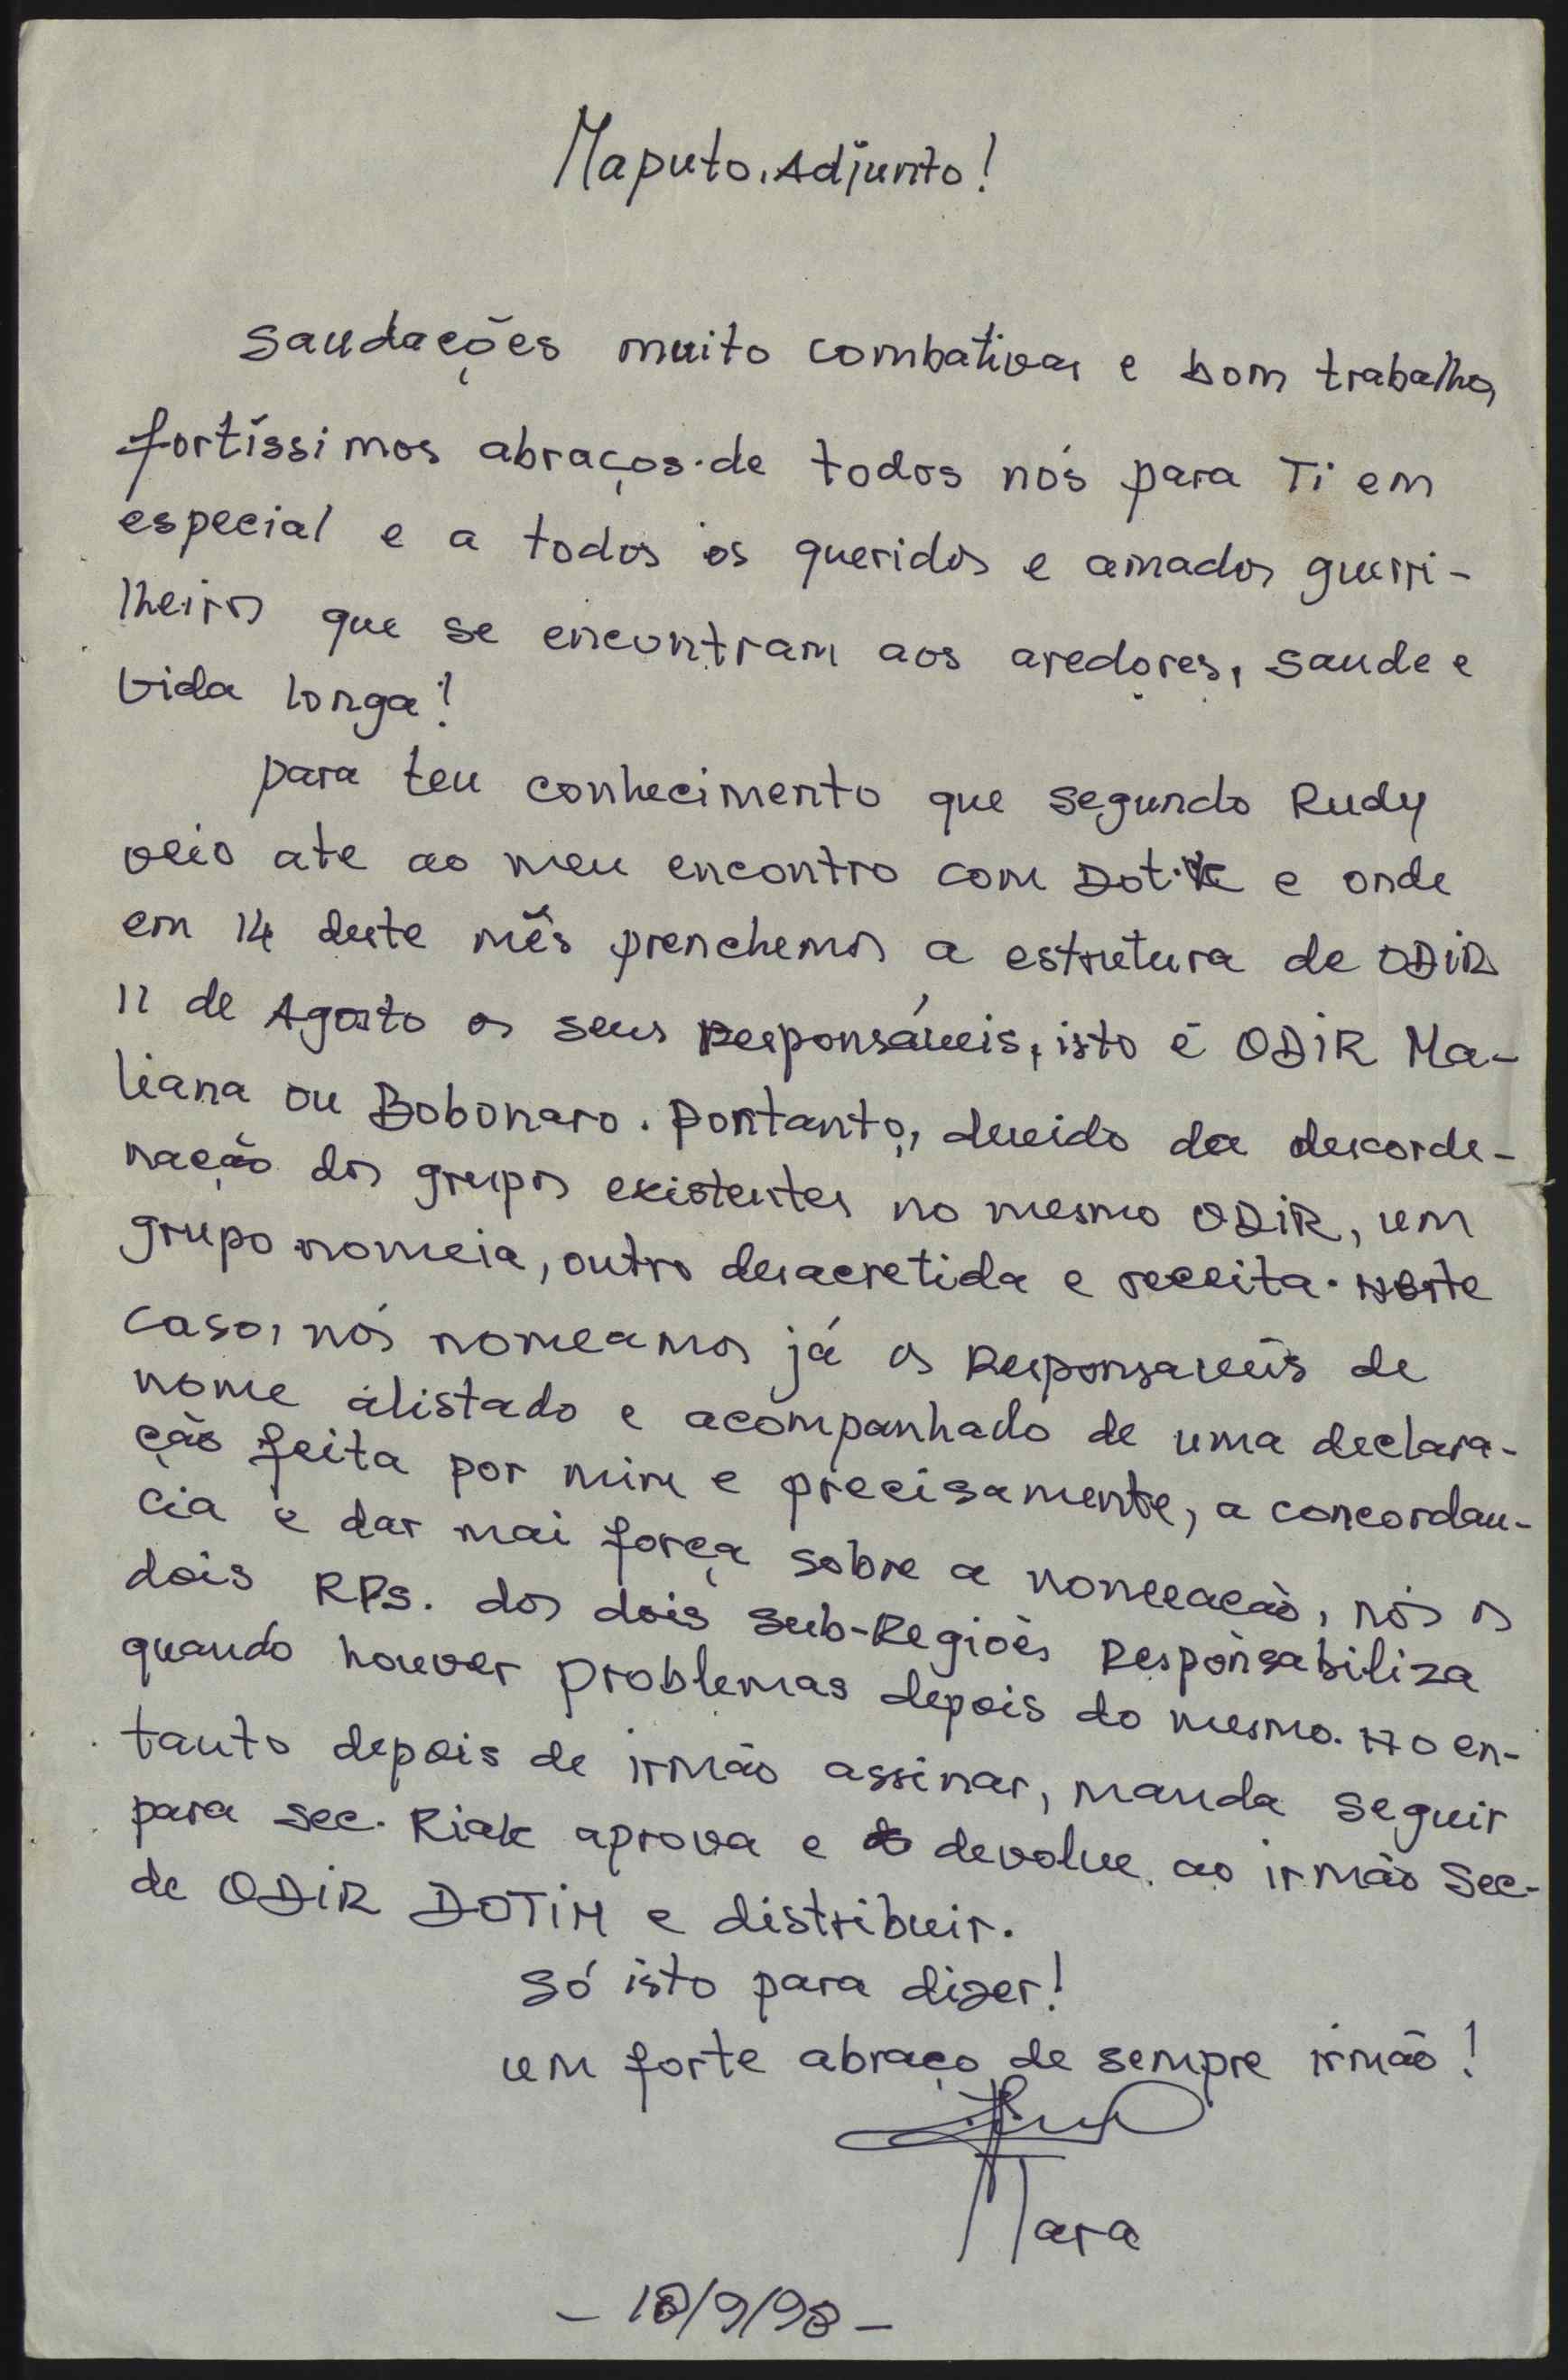 Maputo, Adjunto!
Saudações muito combativas e bom trabalho,
fortíssimos abraços de todos nós para Ti em
especial e a todos os queridos e amados guerri-
lheiros que se encontram aos aredores, saude e
vida longa!
para teu conhecimento que segundo Rudy
veio ate ao meu encontro com e onde
em 14 deste mês prenchemos a estrutura de ODIR
11 de Agosto os seus Responsáveis, isto é ODIR Ma-
liana ou Bobonaro. Portanto, devido da descorde-
nação dos grupos existentes no mesmo ODIR, um
grupo nomeia, outro desacretida e receita. Neste
caso, nós nomeamos já os Responsaveis de
nome alistado e acompanhado de uma declara-
ção feita por mim e precisamente, a concordan-
cia e dar mai força sobre a nomeação, nós os
dois RPs. dos dois Sub-Regiões Responsabiliza
quando houver problemas depois do mesmo. No en-
tanto depois de irmão assinar, manda seguir
para sec. Riak aprova e devolve ao irmão Sec.
de ODIR DOTIM e distribuir.
Só isto para dizer!
um forte abraço de sempre irmão!
Mara
- 18/9/98 -